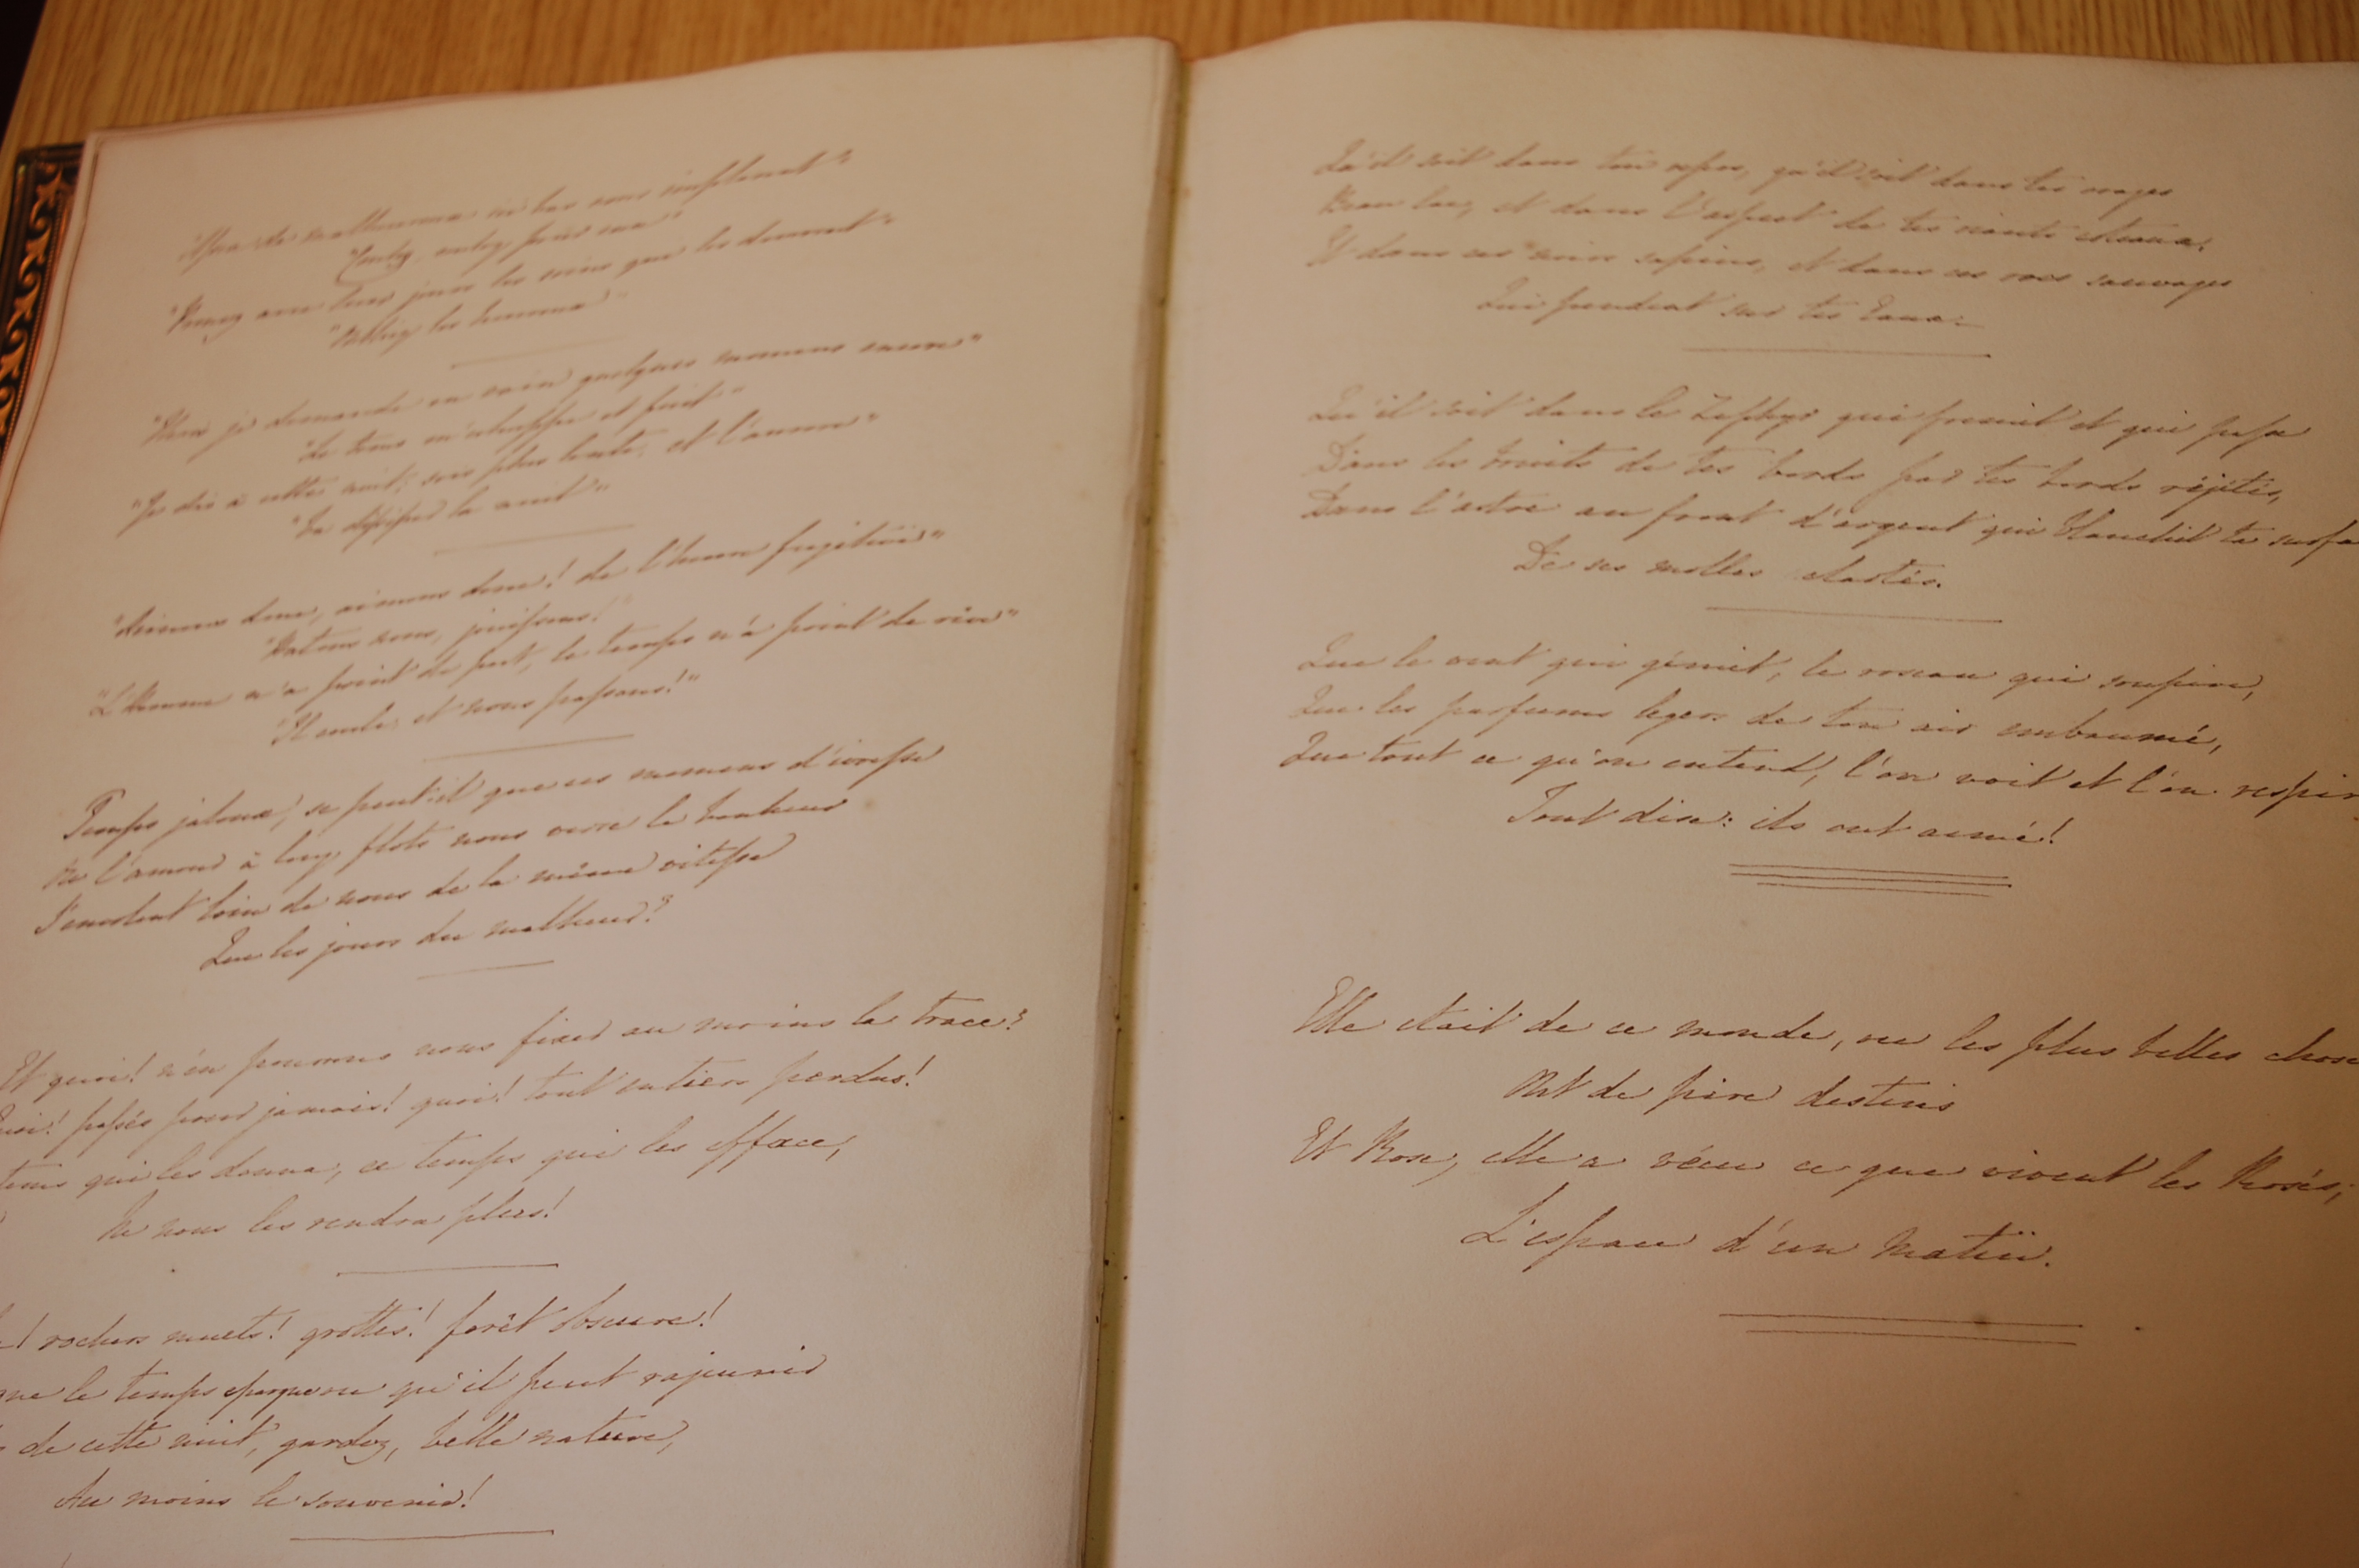 "Assez de malheureux ici bas vous implorent"
"Coulez, coulez pour eux"
"Prenez avec leurs jours les soins qui les dévorent"
"Oubliez les heureux"
"Mais je demande en vain quelques momens encore"
"Le tems m'echappe et fuit"
"Je dis à cette nuit; sois plus lente, et l'aurore"
"Va dissiper la nuit"
"Aimons donc, aimons donc! de l'heure fugitive"
"Hatons nous, jouissons!"
"L'Homme n'a point de port, le temps n'a point de rive"
"Il coule et nous passons!"
Temps jaloux, se peut-il que ces momens d'ivresse
Ou l'amour à long flots nous verse le bonheur
S'envolent loin de nous de la même vitesse
Que les jours du malheur?
Et quoi! n'en pourrons nous fixer au moins la trace?
Quoi! passés pour jamais! quoi! tout entiers perdus!
tems qui les donna, ce temps qui les efface,
Ne nous les rendra plus!
! rochers muets! grottes! forêt obscure!
que le temps epargne ou qu'il peut rajeunir
de cette nuit, gardez, belle nature,
Au moins le souvenir!
Qu'il soit dans ton repos, qu'il soit dans tes orages
Beau lac, et dans l'aspect de tes riants coteaux.
Et dans ces noirs sapins, et dans ces rocs sauvages
Qui pendent sur tes Eaux.
Qu'il soit dans le Zephyr qui fremit et qui passe
Dans les bruits de tes bords par tes bords réjétés,
Dans l'astre au front d'argent qui blanchit ta surfa
De ses molles clartés.
Que le vent qui gémit, le roseau qui soupire,
Que les parfums legers de ton air embaumé,
Que tout ce qu'on entend, l'on voit et l'on respir
Tout dise: ils ont aimé!
Elle etait de ce monde, ou les plus belles chose
Ont de pire destins
Et Rose, elle a vécu ce que vivent les Roses;
L'espace d'un matin.